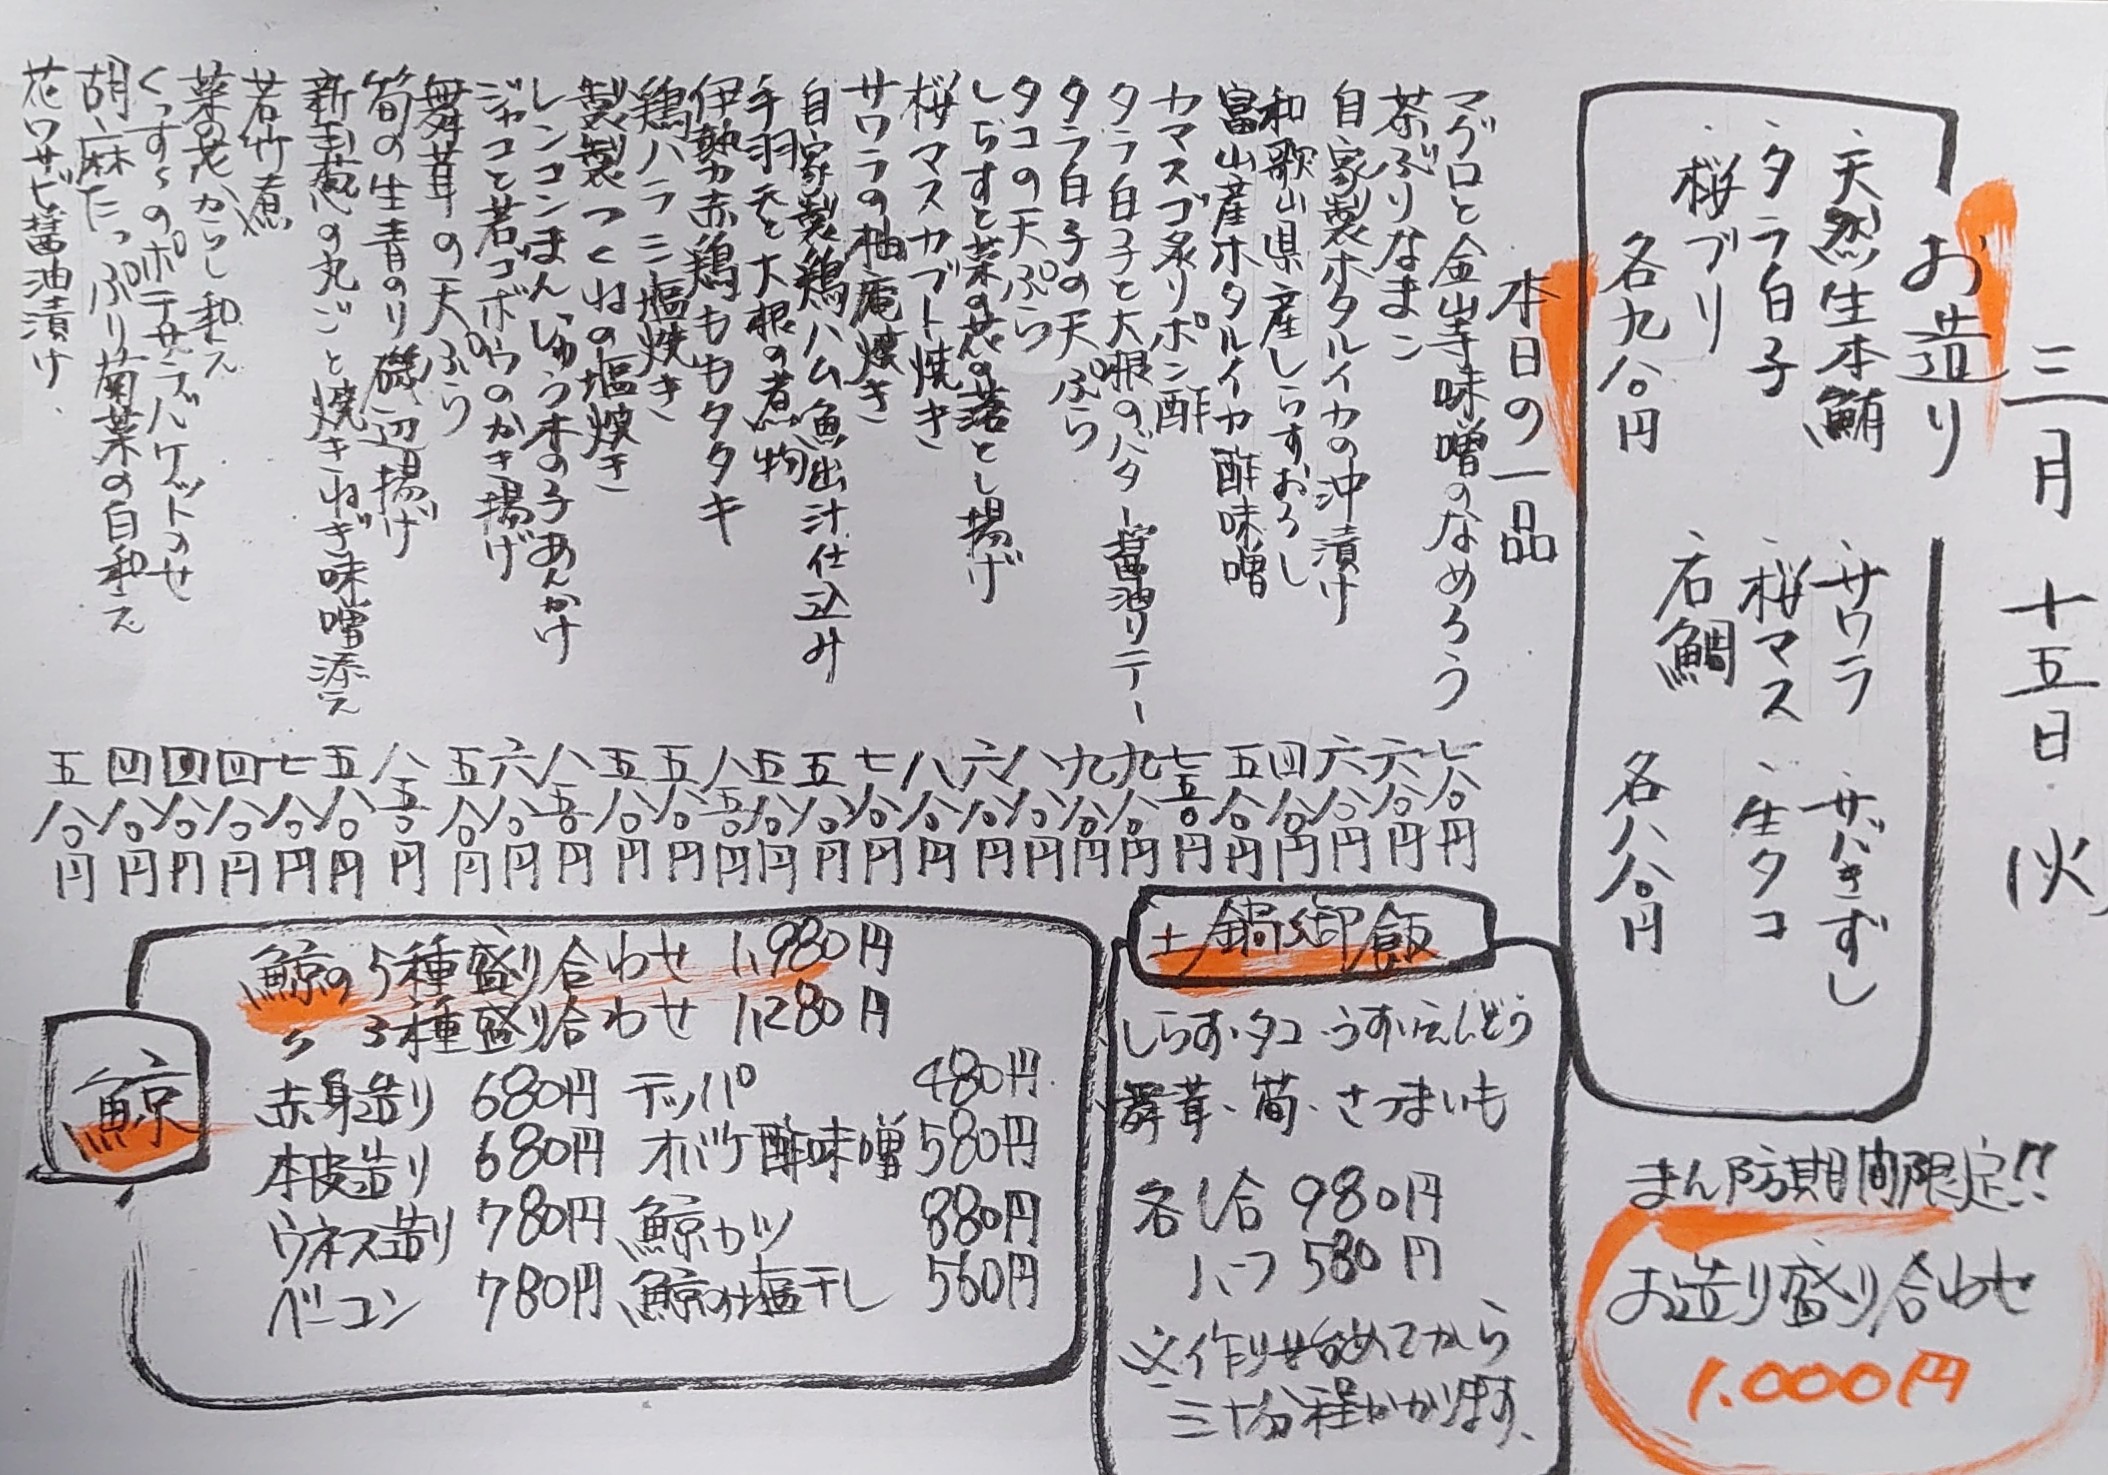 三月十五日(火)
お造り
・天然生本鮪
・タラ白子
・桜ブリ
各九八〇円
・サワラ
・桜マス
・石鯛
・サバきずし
・生タコ
各八八〇円
まん防期間限定!!
お造り盛り合わせ
1.000円
本日の一品
マグロと金山寺味噌のなめろう 七八〇円
茶ぶりなまこ 六八〇円
自家製ホタルイカの沖漬け 六八〇円
和歌山県産しらすおろし 四八〇円
富山産ホタルイカ酢味噌 五八〇円
カマスゴ炙りポン酢 七五〇円
タラ白子と大根のバター醤油リテー 九八〇円
タラ白子の天ぷら 九八〇円
タコの天ぷら 八八〇円
しらすと菜の花の落とし揚げ 六八〇円
桜マスカブト焼き 八八〇円
サワラの柚庵焼き 七八〇円
自家製鶏ハム魚出汁仕込み 五八〇円
手羽元と大根の煮物 五八〇円
伊勢赤鶏ももタタキ 八五〇円
鶏ハラミ塩焼き 五八〇円
製つくねの塩焼き 五八〇円
レンコンまんじゅう木の子あんかけ 八五〇円
ジャコと若ゴボウのかき揚げ 六八〇円
舞茸の天ぷら 五八〇円
筍の生青のり磯辺揚げ 八五〇円
新玉葱の丸ごと焼きねぎ味噌添え 五八〇円
若竹煮 七八〇円
菜の花からし和え 四八〇円
くっすぅのポテサラバケットのせ 四八〇円
胡麻たっぷり菊菜の白和え 四八〇円
花ワサビ醤油漬け 五八〇円
土鍋御飯
しらす・タコ・うすいえんどう
舞茸・筍・さつまいも
各1合 980円
ハーフ 580円
※作り始めてから
三十分程かかります、
鯨
鯨の5種盛り合わせ 1,980円
〃 3種盛り合わせ 1,280円
赤身造り 680円 テッパ° 480円
本皮造り 680円 オバケ酢味噌 580円
ウネス造り 780円 鯨カツ 880円
ベーコン 780円 鯨の塩干し 560円